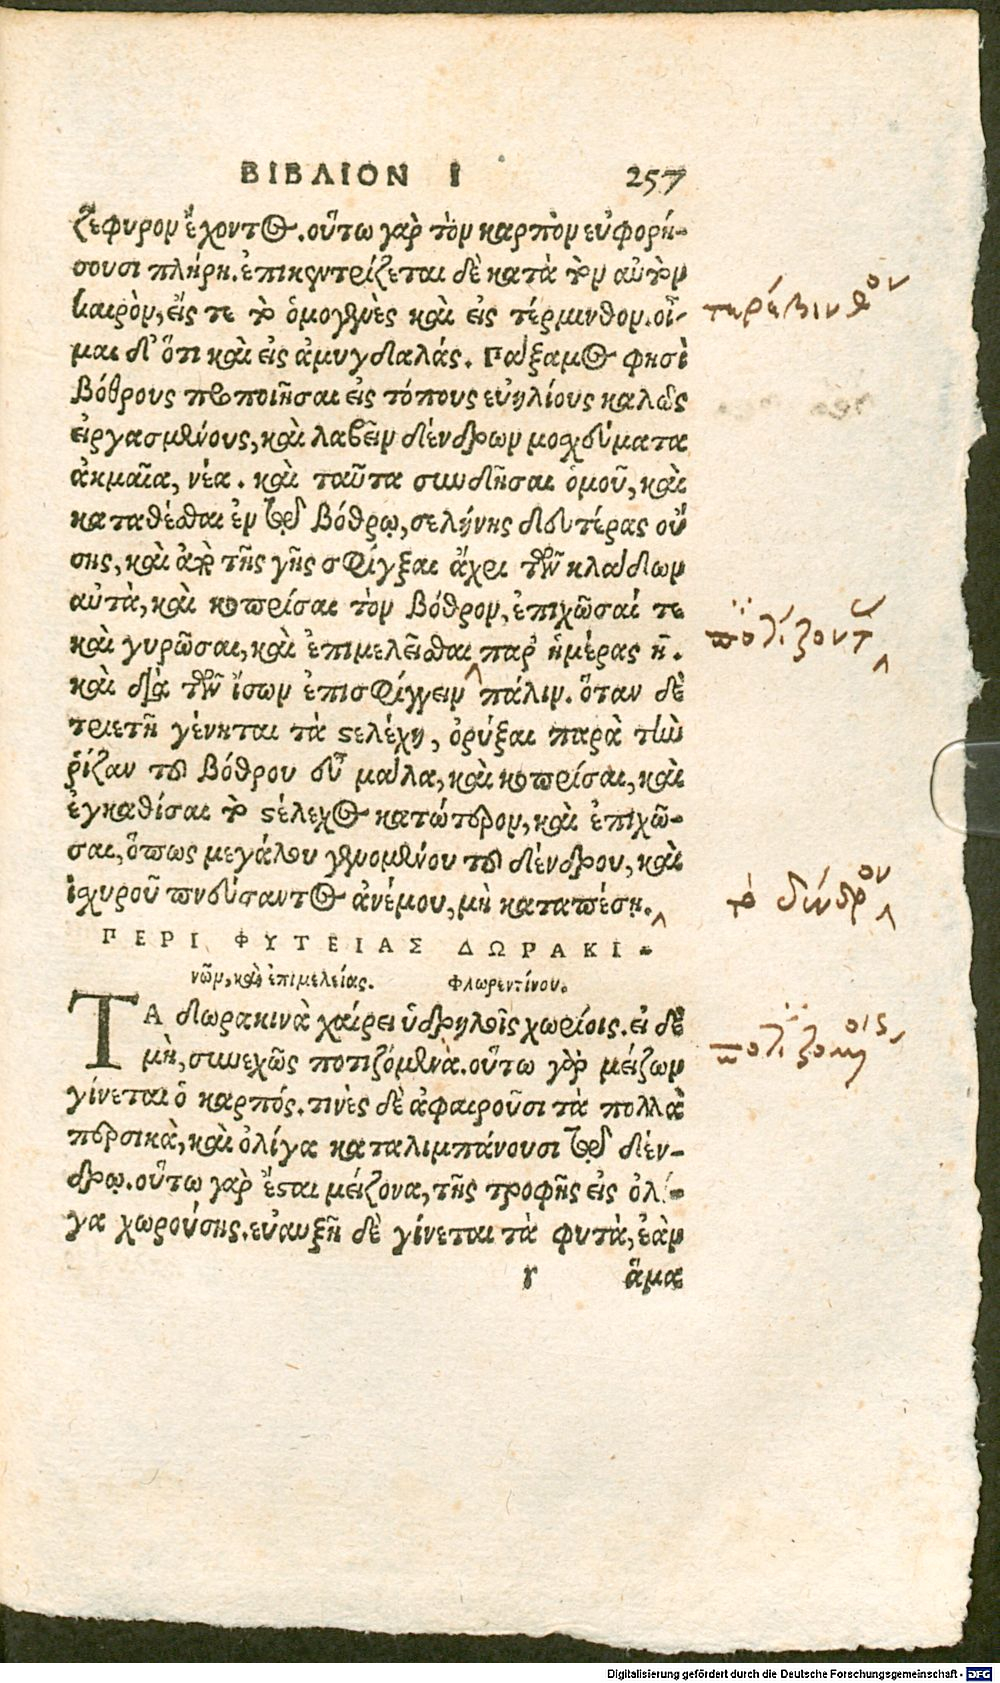 ΒΙΒΛΙΟΝ Ι 257
ζέφυρον ἔχοντος. οὕτω γὰρ τὸν καρπὸν εὐφορή-
σουσι πλήρη. ἐπικεντρίζεται δὲ κατὰ τὸν αὐτὸν
καιρὸν, εἴς τε τὸ ὁμογενὲς καὶ εἰς τέρμινθον. οἶ-
μαι δ' ὅτι καὶ εἰς ἀμυγδαλάς. Πάξαμος φησὶ
βόθρους προποιῆσαι εἰς τόπους εὐηλίους καλῶς
εἰργασμένους, καὶ λαβεῖν δένδρων μοσχεύματα
ἀκμαῖα, νέα. καὶ ταῦτα συνδῆσαι ὁμοῦ, καὶ
καταθέσθαι ἐν τῷ βόθρῳ, σελήνης δευτέρας οὔ
σης, καὶ ἀπὸ τῆς γῆς σφίγξαι ἄχρι τῶν κλάδων
αὐτὰ, καὶ κοπρίσαι τὸν βόθρον, ἐπιχῶσαί τε
καὶ γυρῶσαι, καὶ ἐπιμελεῖσθαι παρ' ἡμέρας η.
καὶ διὰ τῶν ἴσων ἐπισφίγγειν πάλιν. ὅταν δὲ
τριετῆ γένηται τὰ στελέχη, ὀρύξαι παρὰ τὴν
ῥίζαν τοῦ βόθρου εὖ μάλα, καὶ κοπρίσαι, καὶ
ἐγκαθίσαι τὸ στέλεχος κατώτερον, καὶ ἐπιχῶ-
σαι, ὅπως μεγάλου γενομένου τοῦ δένδρου, καὶ
ἰσχυροῦ πνεύσαντος ἀνέμου, μὴ καταπέσῃ.
ΠΕΡΙ ΦΥΤΕΙΑΣ ΔΩΡΑΚΙ-
νῶν, καὶ ἐπιμελείας. Φλωρεντίνου.
ΤΑ δωρακινὰ χαίρει ὑδρηλοῖς χωρίοις. εἰ δὲ
μὴ, συνεχῶς ποτιζόμενα. οὕτω γὰρ μείζων
γίνεται ὁ καρπός. τινὲς δὲ ἀφαιροῦσι τὰ πολλὰ
περσικὰ, καὶ ὀλίγα καταλιμπάνουσι τῷ δέν-
δρῳ. οὕτω γὰρ ἔσται μείζονα, τῆς τροφῆς εἰς ὀλί-
γα χωρούσης. εὐαυξῆ δὲ γίνεται τὰ φυτὰ, ἐὰν
r ἅμα
τερέβινθον
ποτίζοντ
τὸ δένδρον
Digitalisierung gefördert durch die Deutsche Forschungsgemeinschaft - DFG